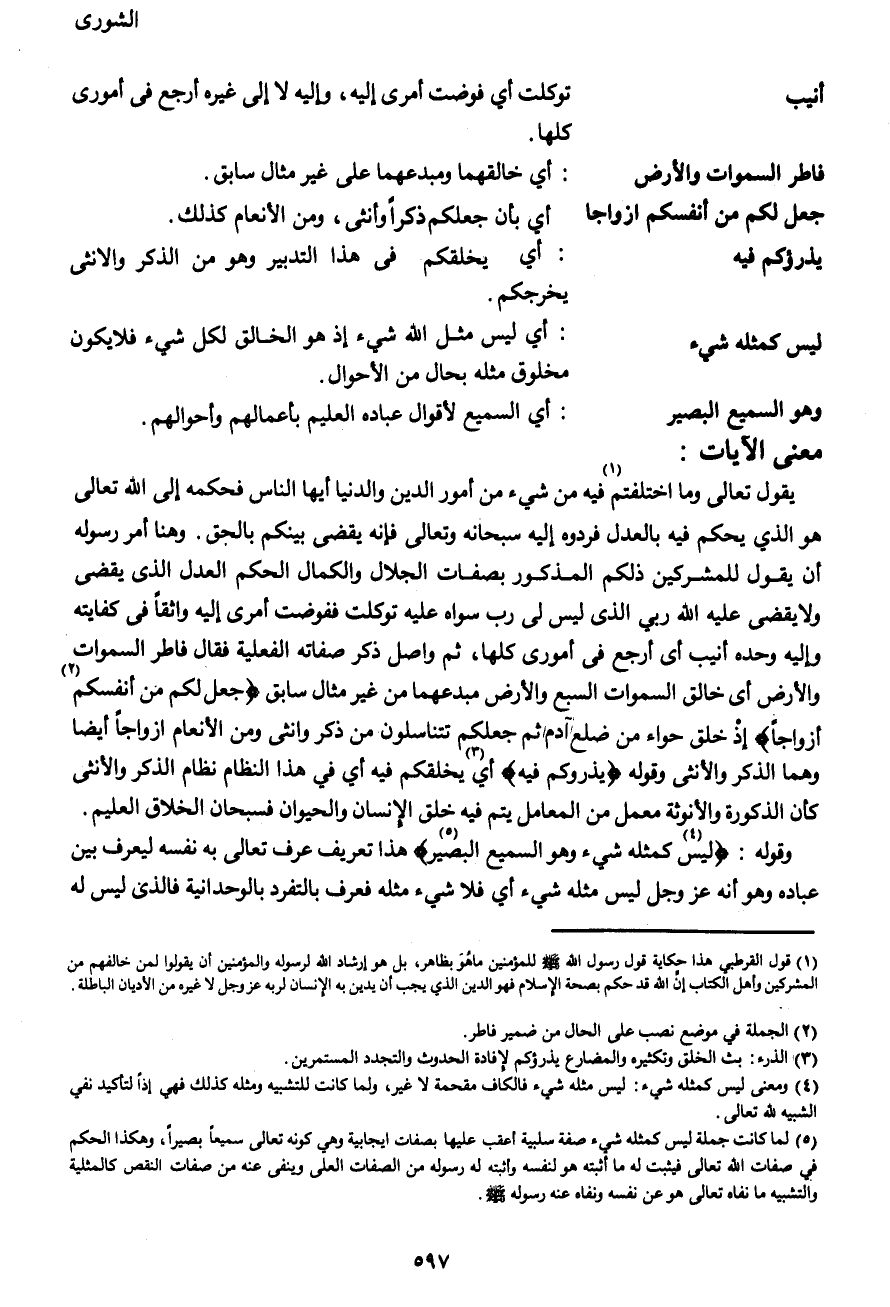 الشورى
أنيب توكلت أي فوضت أمرى إليه، وإليه لا إلى غيره أرجع فى أمورى
كلها.
فاطر السموات والأرض : أي خالقهما ومبدعهما على غير مثال سابق.
جعل لكم من أنفسكم ازواجا أي بأن جعلكم ذكراً وأنثى، ومن الأنعام كذلك.
يذرؤكم فيه : أي يخلقكم فى هذا التدبير وهو من الذكر والانثى
يخرجكم.
ليس كمثله شيء : أي ليس مثل الله شيء إذ هو الخالق لكل شيء فلايكون
مخلوق مثله بحال من الأحوال.
وهو السميع البصير : أي السميع لأقوال عباده العليم بأعمالهم وأحوالهم.
معنى الآيات :
يقول تعالى وما اختلفتم(١) فيه من شيء من أمور الدين والدنيا أيها الناس فحكمه إلى الله تعالى
هو الذي يحكم فيه بالعدل فردوه إليه سبحانه وتعالى فإنه يقضى بينكم بالحق. وهنا أمر رسوله
أن يقول للمشركين ذلكم المذكور بصفات الجلال والكمال الحكم العدل الذى يقضى
ولايقضى عليه الله ربي الذى ليس لى رب سواه عليه توكلت ففوضت أمرى إليه واثقاً فى كفايته
وإليه وحده أنيب أى أرجع فى أمورى كلها، ثم واصل ذكر صفاته الفعلية فقال فاطر السموات
والأرض أى خالق السموات السبع والأرض مبدعهما من غير مثال سابق ﴿جعل لكم من أنفسكم(٢)
أزواجاً﴾ إذْ خلق حواء من ضلع آدم ثم جعلكم تتناسلون من ذكر وانثى ومن الأنعام ازواجاً أيضا
وهما الذكر والأنثى وقوله ﴿يذروكم فيه﴾ أي(٣) يخلقكم فيه أي في هذا النظام نظام الذكر والأنثى
كأن الذكورة والأنوثة معمل من المعامل يتم فيه خلق الإنسان والحيوان فسبحان الخلاق العليم.
وقوله : ﴿ليس(٤) كمثله شيء وهو السميع البصير(٥)﴾ هذا تعريف عرف تعالى به نفسه ليعرف بين
عباده وهو أنه عز وجل ليس مثله شيء أي فلا شيء مثله فعرف بالتفرد بالوحدانية فالذى ليس له
(١) قول القرطبي هذا حكاية قول رسول الله ﷺ للمؤمنين ماهُوَ بظاهر، بل هو إرشاد الله لرسوله والمؤمنين أن يقولوا لمن خالفهم من
المشركين وأهل الكتاب إنَّ الله قد حكم بصحة الإسلام فهو الدين الذي يجب أن يدين به الإنسان لربه عز وجل لا غيره من الأديان الباطلة.
(٢) الجملة في موضع نصب على الحال من ضمير فاطر.
(٣) الذرء: بث الخلق وتكثيره والمضارع يذرؤكم لإفادة الحدوث والتجدد المستمرين.
(٤) ومعنى ليس كمثله شيء: ليس مثله شيء فالكاف مقحمة لا غير، ولما كانت للتشبيه ومثله كذلك فهي إذاً لتأكيد نفي
الشبيه لله تعالى.
(٥) لما كانت جملة ليس كمثله شيء صفة سلبية أعقب عليها بصفات ايجابية وهي كونه تعالى سميعاً بصيراً، وهكذا الحكم
في صفات الله تعالى فيثبت له ما أثبته هو لنفسه واثبته له رسوله من الصفات العلى وينفى عنه من صفات النقص كالمثلية
والتشبيه ما نفاه تعالى هو عن نفسه ونفاه عنه رسوله ﷺ.
٥٩٧